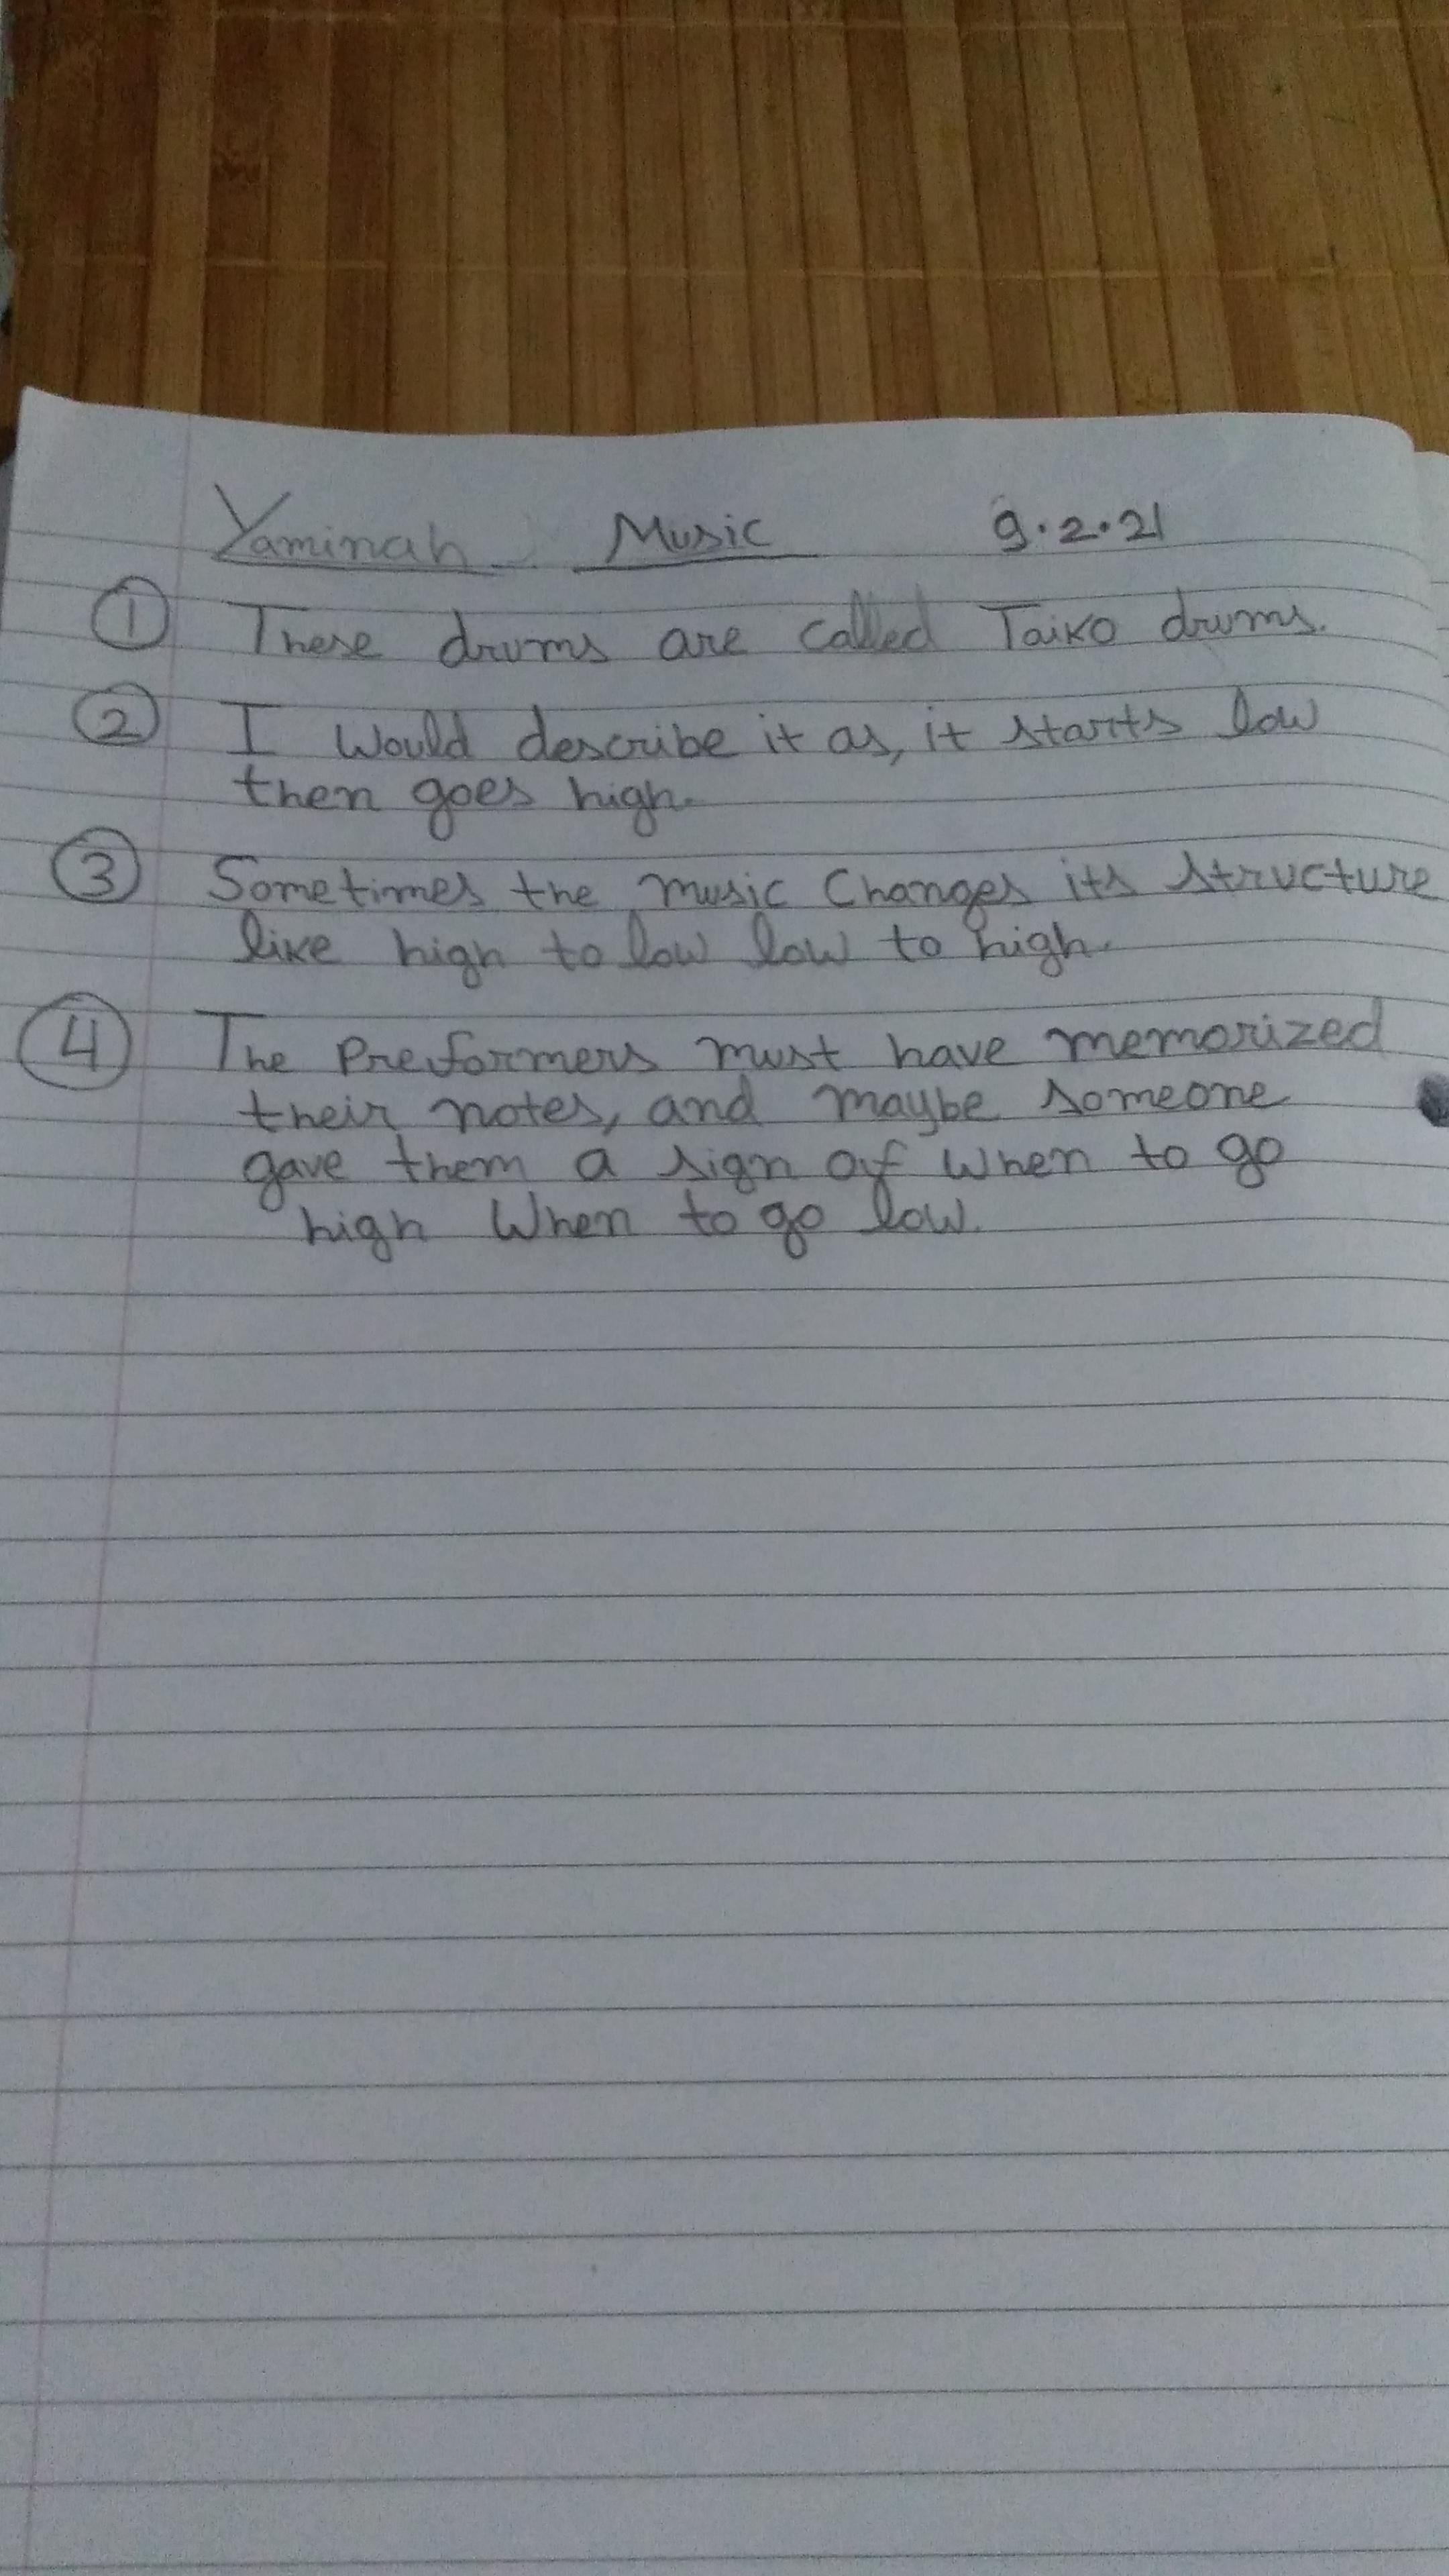 Yaminah Music 9.2.21
1 These drums are called Taiko drums.
2 I would describe it as, it starts low
then goes high.
3 Sometimes the music changes its structure
like high to low low to high.
4 The Preformers must have memorized
their notes, and maybe someone
gave them a sign of when to go
high When to go low.